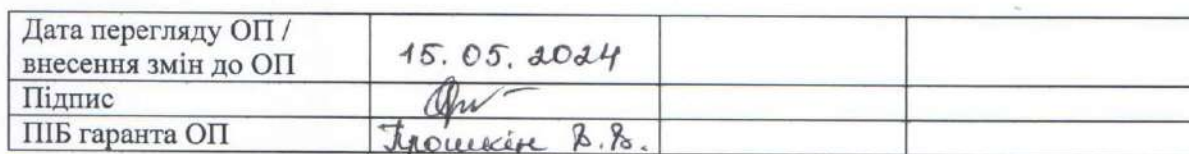 Дата перегляду ОП /
внесення змін до ОП
15.05.2024
Підпис
ПІБ гаранта ОП
Прошкін В.В.